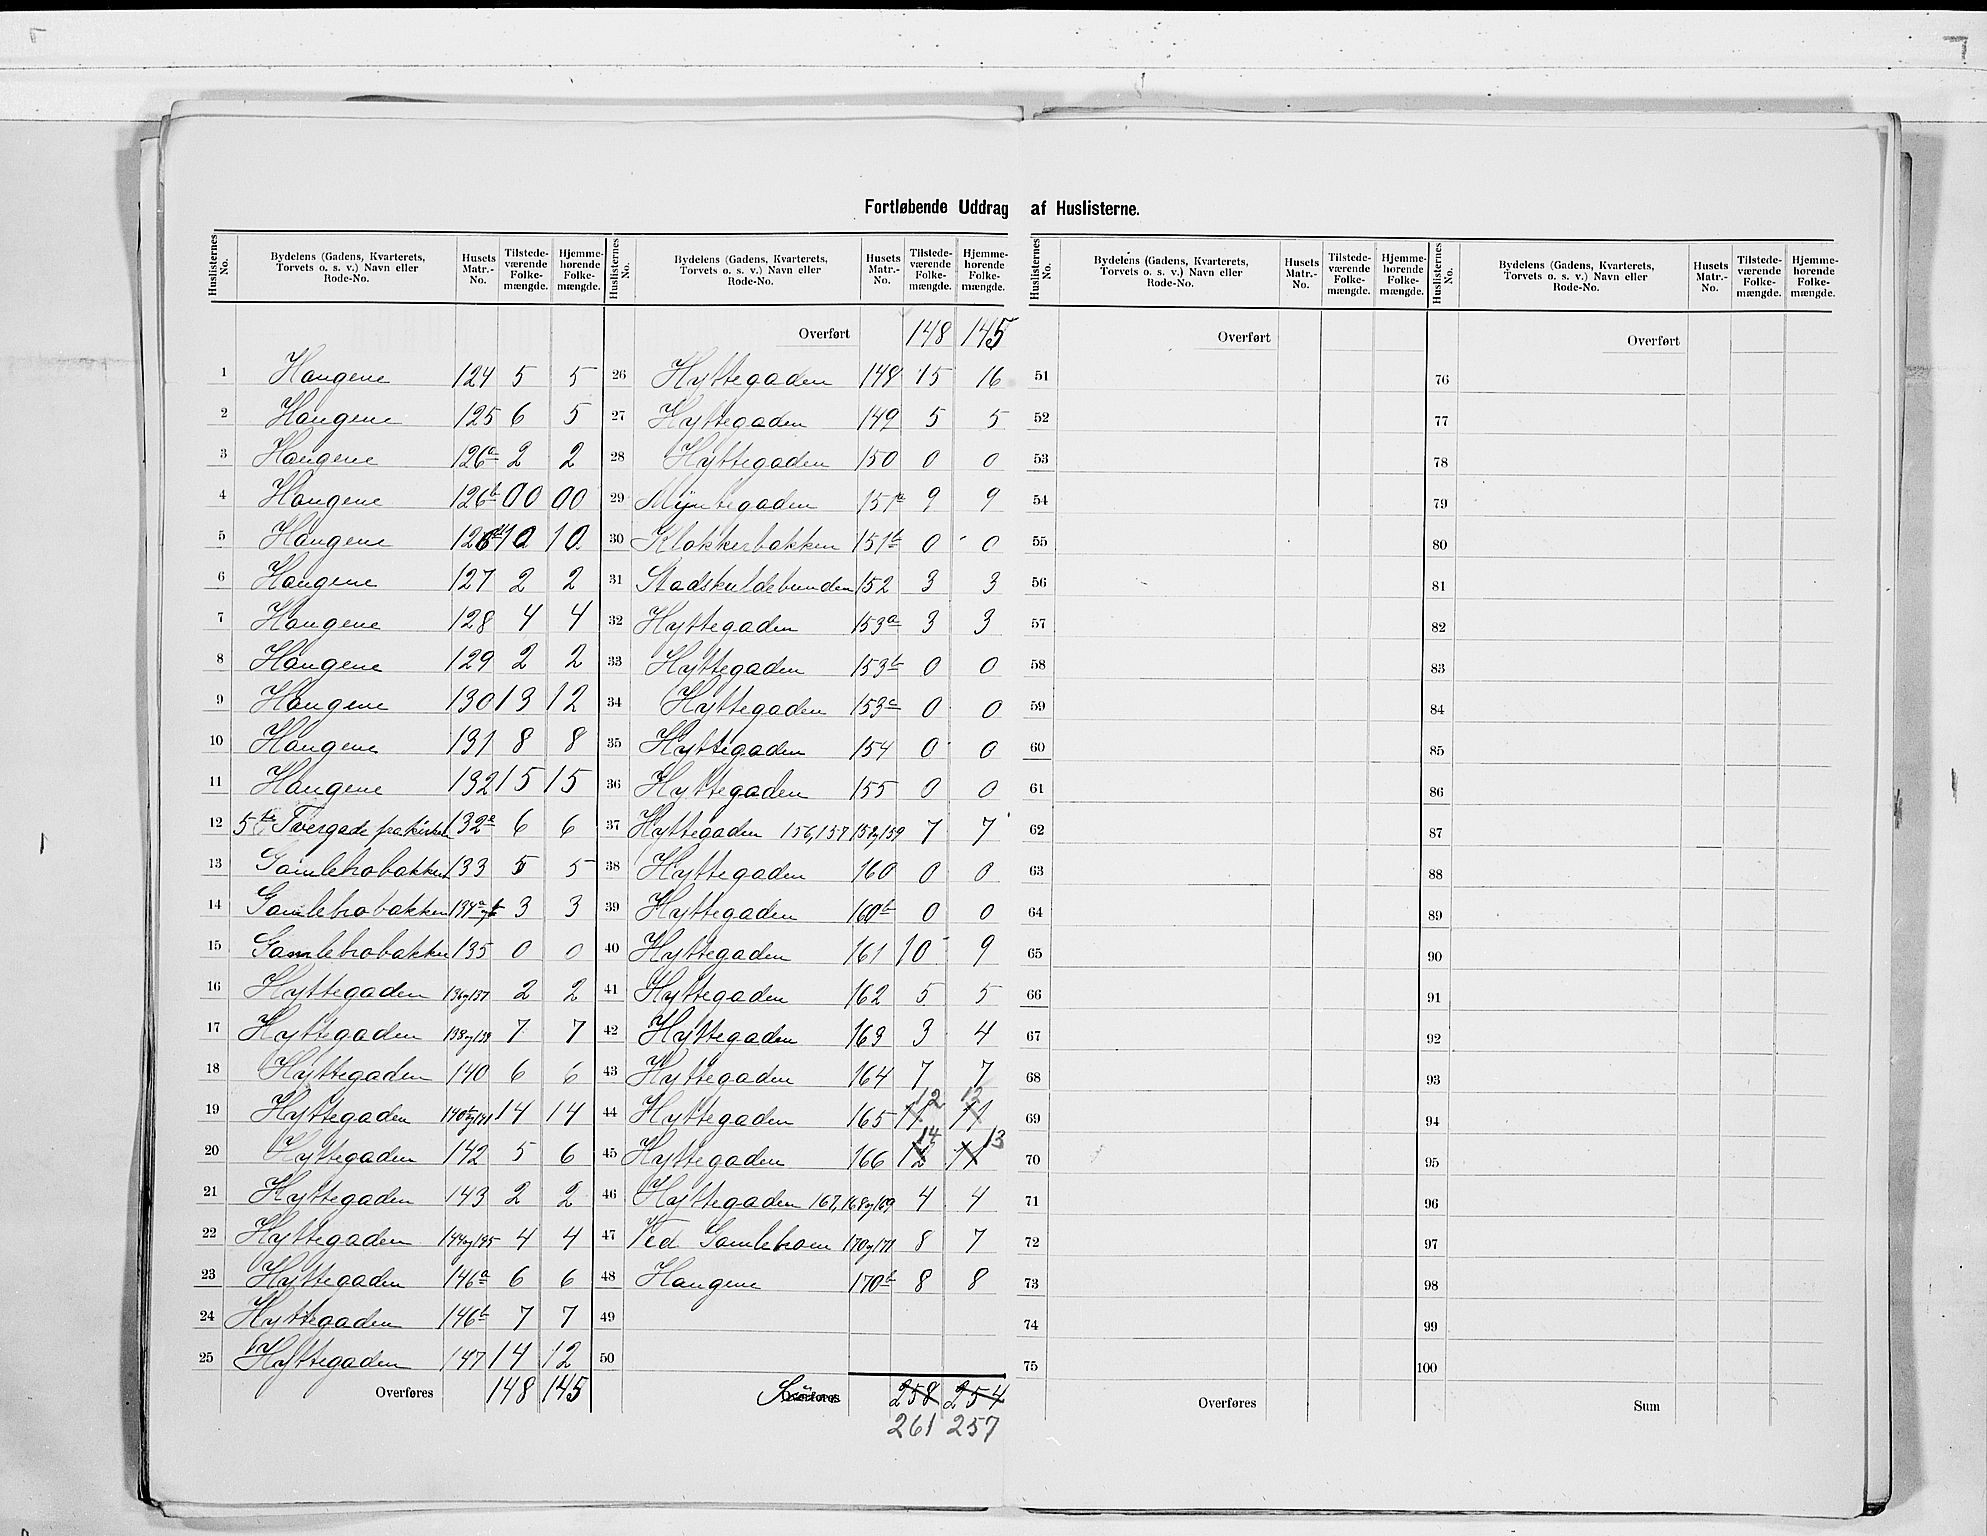 Fortløbende Uddrag af Huslisterne.
Huslisternes No. | Bydelens (Gadens, Kvarterets, Torvets o. s. v.) Navn eller Rode-No. | Husets Matr.-No. | Tilstede-værende Folke-mængde. | Hjemme-hørende Folke-mængde.
1 Haugene 124 5 5
2 Haugene 125 6 5
3 Haugene 126a 2 2
4 Haugene 126b 00 00
5 Haugene 126 10 10
6 Haugene 127 2 2
7 Haugene 128 4 4
8 Haugene 129 2 2
9 Haugene 130 13 12
10 Haugene 131 8 8
11 Haugene 132 15 15
12 5te Tvergade fra kirken 132a 6 6
13 Gamlebrobakken 133 5 5
14 Gamlebrobakken 134a og b 3 3
15 Gamlebrobakken 135 0 0
16 Hyttegaden 136 og 137 2 2
17 Hyttegaden 138 og 139 7 7
18 Hyttegaden 140 6 6
19 Hyttegaden 140b og 141 14 14
20 Hyttegaden 142 5 6
21 Hyttegaden 143 2 2
22 Hyttegaden 144 og 145 4 4
23 Hyttegaden 146a 6 6
24 Hyttegaden 146b 7 7
25 Hyttegaden 147 14 12
Overføres 148 145
Huslisternes No. | Bydelens (Gadens, Kvarterets, Torvets o. s. v.) Navn eller Rode-No. | Husets Matr.-No. | Tilstede-værende Folke-mængde. | Hjemme-hørende Folke-mængde.
Overført 148 145
26 Hyttegaden 148 15 16
27 Hyttegaden 149 5 5
28 Hyttegaden 150 0 0
29 Myntegaden 151a 9 9
30 Klokkerbakken 151b 0 0
31 Stadskuldebunden 152 3 3
32 Hyttegaden 153a 3 3
33 Hyttegaden 153b 0 0
34 Hyttegaden 153c 0 0
35 Hyttegaden 154 0 0
36 Hyttegaden 155 0 0
37 Hyttegaden 156, 157 158 og 159 7 7
38 Hyttegaden 160 0 0
39 Hyttegaden 160b 0 0
40 Hyttegaden 161 10 9
41 Hyttegaden 162 5 5
42 Hyttegaden 163 3 4
43 Hyttegaden 164 7 7
44 Hyttegaden 165 11 12 11 12
45 Hyttegaden 166 12 14 11 13
46 Hyttegaden 167, 168 og 169 4 4
47 Ved Gamlebroen 170 og 171 8 7
48 Haugene 170b 8 8
49
50
Overføres 258 254
261 257
Huslisternes No. | Bydelens (Gadens, Kvarterets, Torvets o. s. v.) Navn eller Rode-No. | Husets Matr.-No. | Tilstede-værende Folke-mængde. | Hjemme-hørende Folke-mængde.
Overført
51
52
53
54
55
56
57
58
59
60
61
62
63
64
65
66
67
68
69
70
71
72
73
74
75
Overføres
Huslisternes No. | Bydelens (Gadens, Kvarterets, Torvets o. s. v.) Navn eller Rode-No. | Husets Matr.-No. | Tilstede-værende Folke-mængde. | Hjemme-hørende Folke-mængde.
Overført
76
77
78
79
80
81
82
83
84
85
86
87
88
89
90
91
92
93
94
95
96
97
98
99
100
Sum